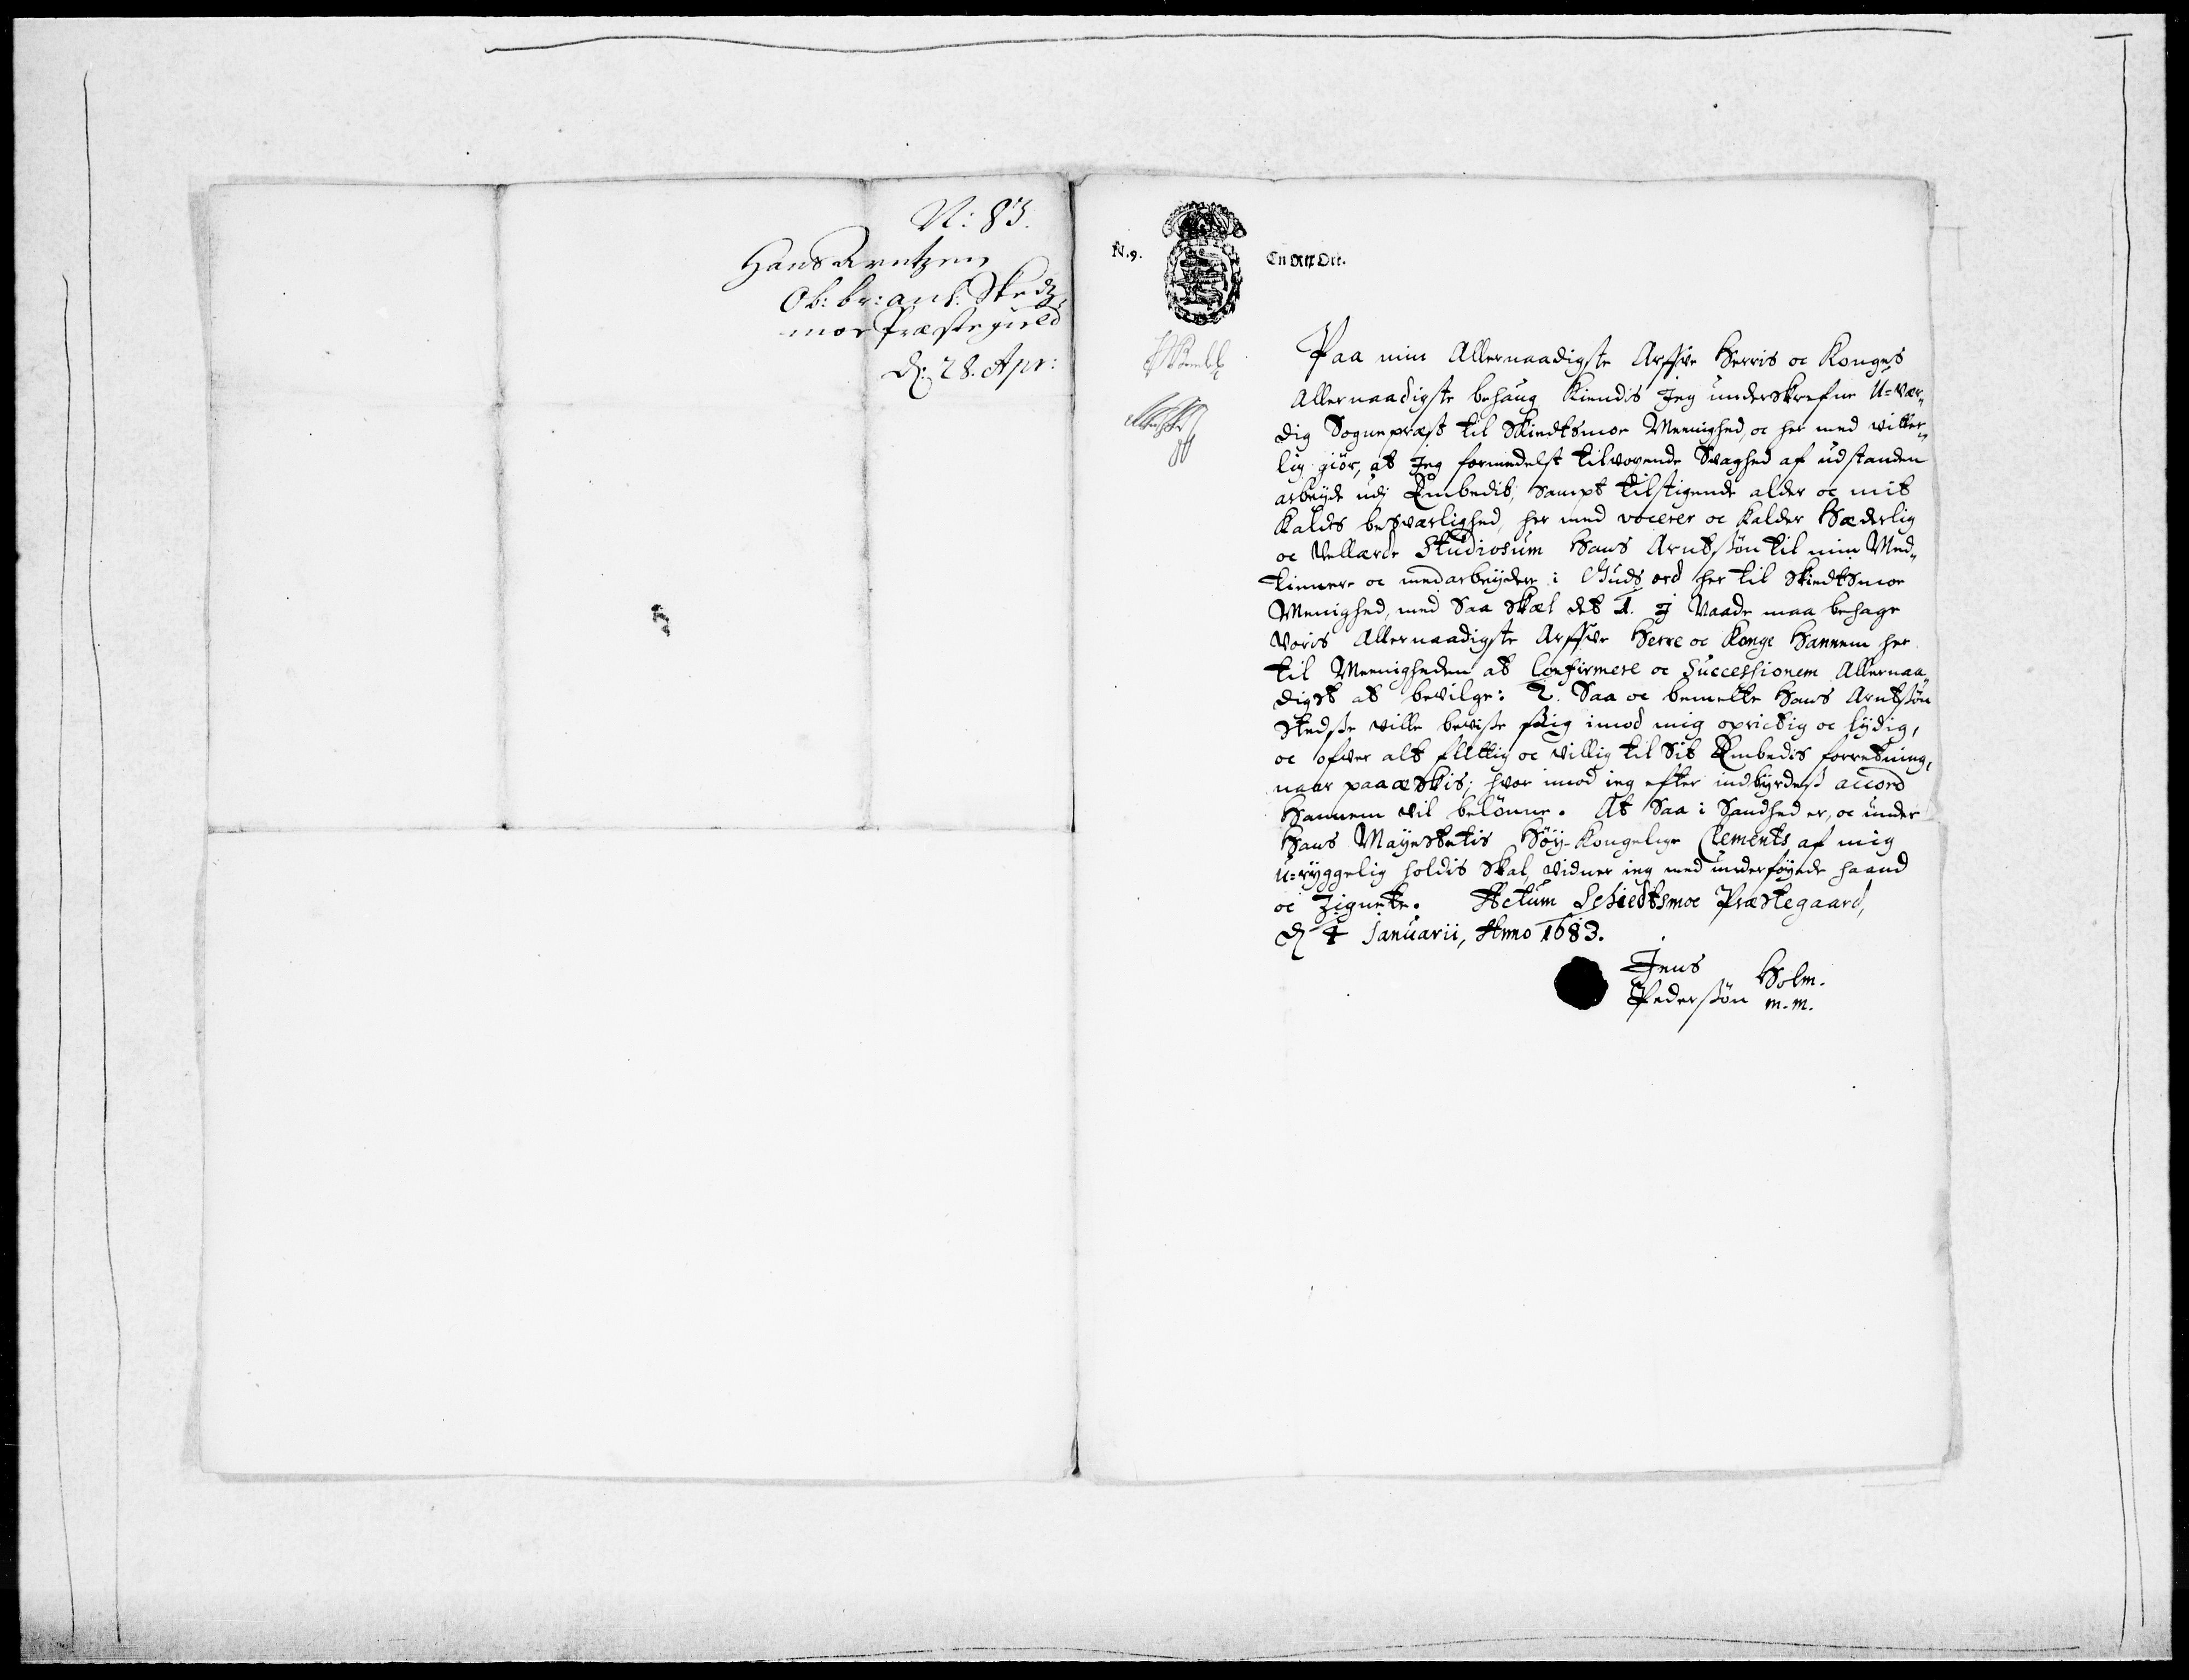 N: 83.
Hans Arntzen
Ob: br: anl: Skedz,
moe Præstegield
d: 28. Apr:
N. 9.
En Ort.
Paa min Allernaadigste Arffve Herris oc Konges
Allernaadigste behaug kiendis Jeg underskrefne U=vær,,
dig Sognepræst til Skiedtsmoe Meenighed, oc her med vitter,,
lig giör, at Jeg formedelst tilvoxende Svaghed af udstanden
arbeyde udj Embedit, sampt tilstigende alder oc mit
Kalds besværlighed, her med vocerer oc kalder Hæderlig
oc Vellærde Studiosum Hans Arntssön til min Med,,
tienere oc medarbeydere i Guds ord her til Skiedtsmoe
Menighed, med saa skæl det 1. j Naade maa behage
Voris Allernaadigste Arffve Herre oc Konge hannem her
til Meenigheden at Confirmere oc Successionem Allernaa,,
digst at bevilge: 2. Saa oc bemelte Hans Arntssön
stedsse ville bevisse sig imod mig oprictig oc lydig,
oc ofver alt flittig oc villig til sit Embedis forretning,
naar paaæskis; hvor imod ieg efter indbyrdess accord
hannem vil belönne. At saa i Sandhed er, oc under
Hans Mayestetis Höy-Kongelige Clements af mig
u=ryggelig holdis skal, vidner ieg med underföyede haand
oc Zignete. Actum Schiedtsmoe Præstegaard,
d 4 Januarii, Anno 1683.
Jens Holm.
Pederssön m.m.